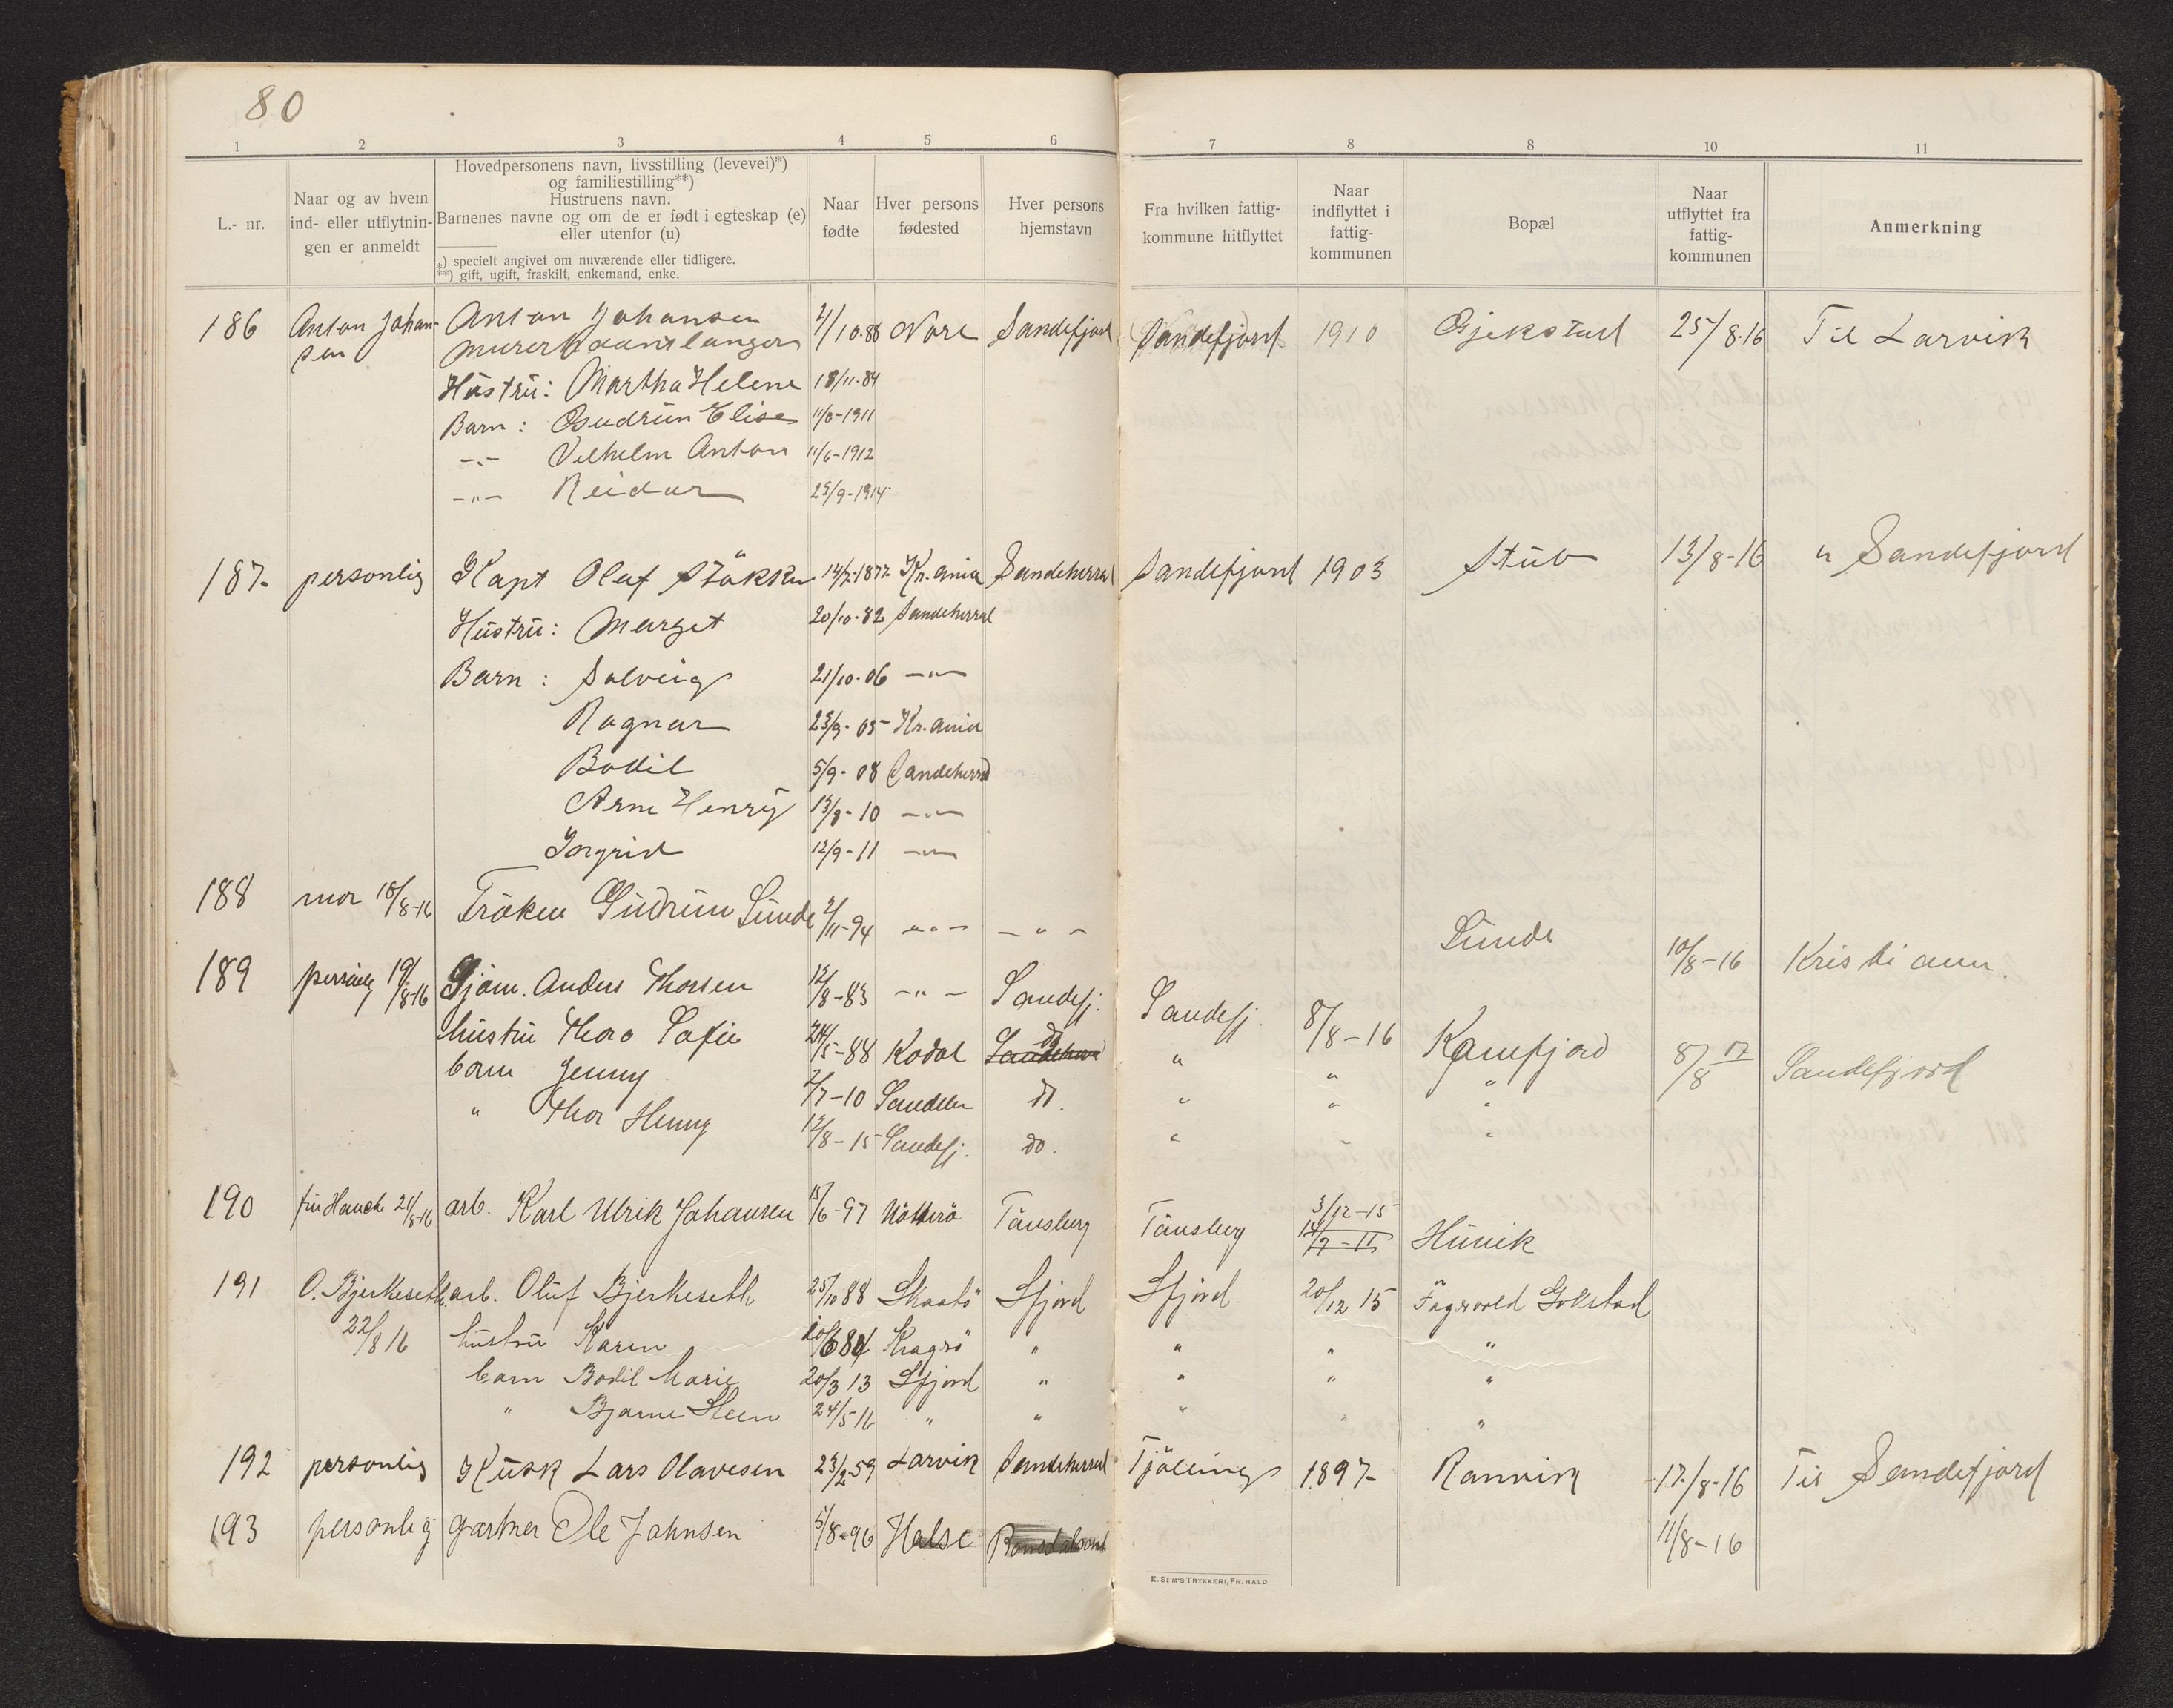 80
1 2 3 4 5 6 7 8 8 10 11
L.- nr.
Naar og av hvem
ind- eller utflytnin-
gen er anmeldt
Hovedpersonens navn, livsstilling (levevei)*)
og familiestilling**)
Hustruens navn.
Barnenes navne og om de er født i egteskap (e)
eller utenfor (u)
*) specielt angivet om nuværende eller tidligere.
**) gift, ugift, fraskilt, enkemand, enke.
Naar
fødte
Hver persons
fødested
Hver persons
hjemstavn
Fra hvilken fattig-
kommune hitflyttet
Naar
indflyttet i
fattig-
kommunen
Bopæl
Naar
utflyttet fra
fattig-
kommunen
Anmerkning
186 Anton Johan- Anton Johansen 4/10-88 Nøre Sandefjord Sandefjord 1910 Gjekstad 25/8-16 Til Larvik
sen
Hustru: Martha Helene 18/11-84
Barn: Gudrun Elise 11/8-1911
-"- Vilhelm Anton 11/6-1912
-"- Reidar 25/9-1914
187- personlig Kapt Olaf Støkken 14/7-1877 Kr.ania Sandeherred Sandefjord 1903 Stub 13/8-16 " Sandefjord
Hustru: Marget 20/10-82 Sandeherred
Barn: Solveig 21/10-06 -"-
Ragnar 23/9-05 Kr.ania
Bodil 5/9-08 Sandeherred
Arne Henry 13/8-10 -"-
Ingrid 12/9-11 -"-
188 mor 18/8-16 Frøken Gudrun Sunde 2/11-94 -"- -"- Sunde 10/8-16 Kristiania.
189 19/8-16 Sjøm. Anders Thorsen 12/8-83 -"- Sandefj. Sandefj. 8/8-16 Kamfjord 8/8 17 Sandefjord
hustru Thora Sofie 24/5-88 Kodal Sandeherred do " " "
barn Jenny 2/7-10 Sandeher do. " " "
" Thor Henry 12/8-15 Sandefj. do. " " "
190 fru Hauch 21/8-16 arb. Karl Ulrik Johansen 15/6-97 Nøtterø Tønsberg Tønsberg 3/12-15 Hunik
191 O. Bjerkeseth arb. Oluf Bjerkeseth 25/10 88 Skaatø Sfjord Sfjord 20/12 15 Fagervold Gokstad
22/8 16 hustru Karen 84 Kragrø " " " "
barn Bodil Marie 20/3 13 Sfjord " " " "
" Bjarne Steen 24/5-16 " " " " "
192 personlig Kusk Lars Olavesen 23/2-59 Larvik Sandeherred Tjølling 1897- Ranvik 17/8-16 Til Sandefjord
193 personlig gartner Ole Johnsen 5/8-96 Halse Romsdalsamt 11/8-16
E. SEM'S TRYKKERI, FR.HALD